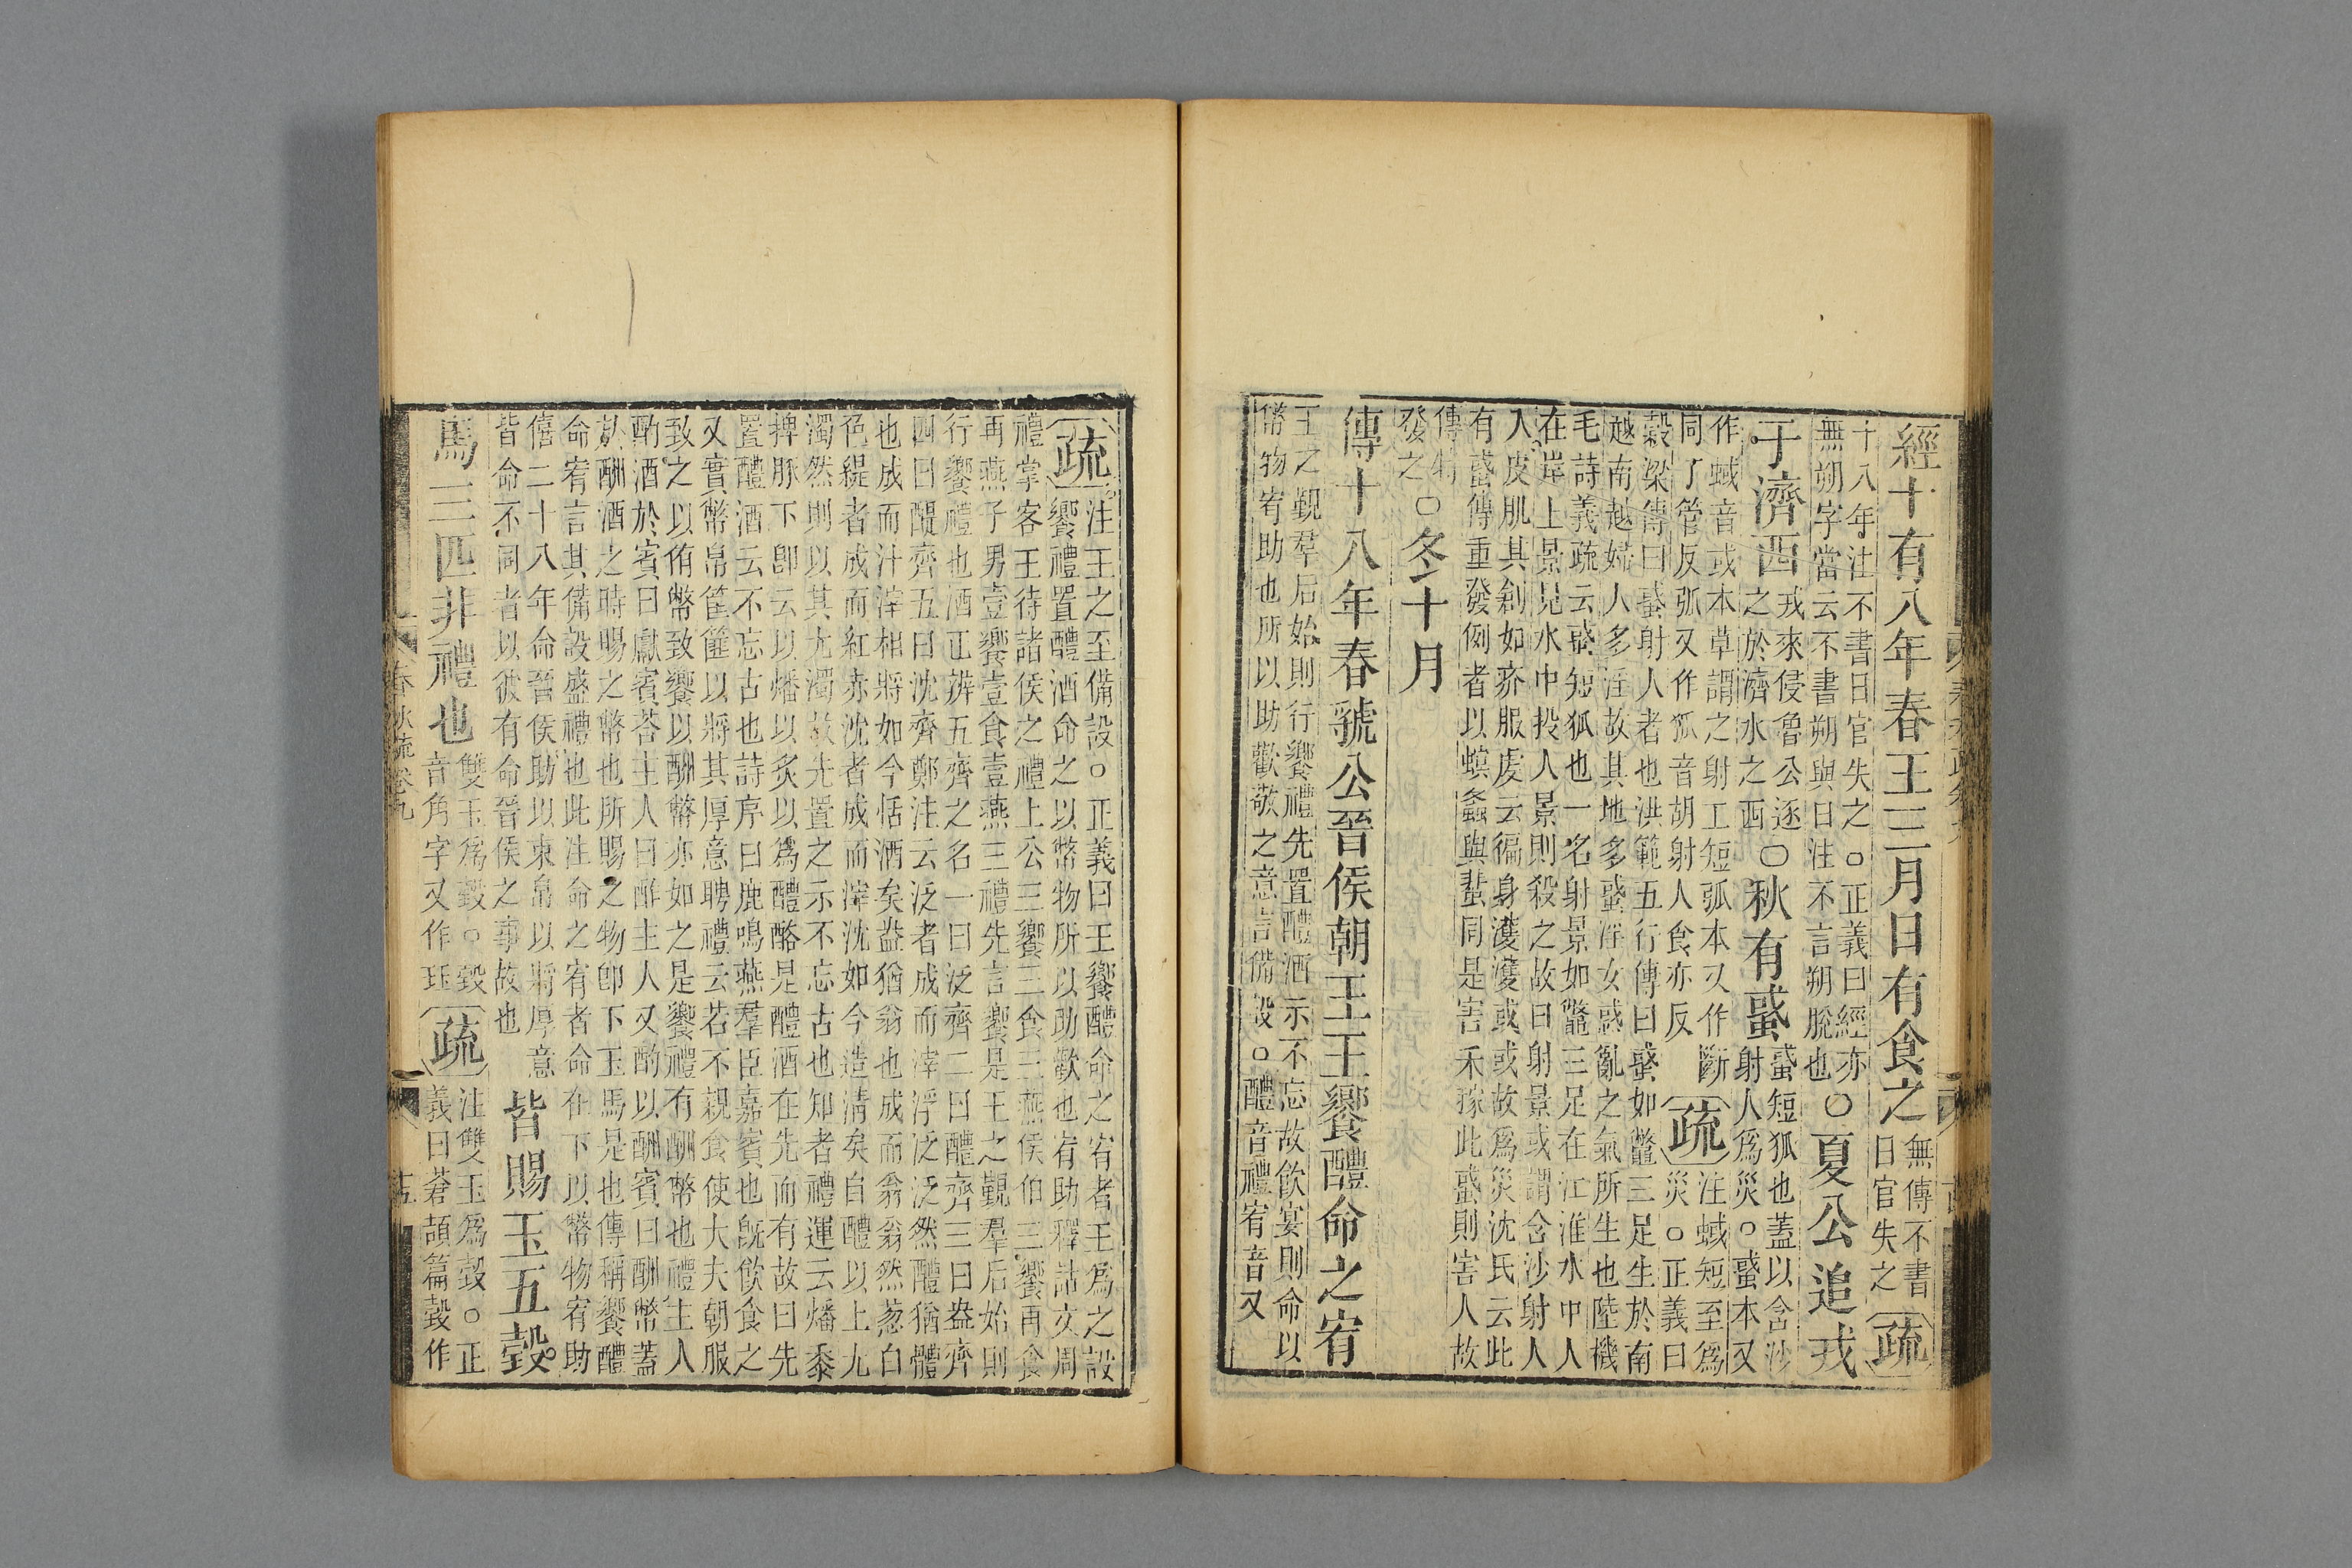 經十有八年春王三月日有食之
無傳不書
日官失之
疏
十八年注不書日官失之○正義曰經亦
無朔字當云不書朔與日注不言朔脫也
○夏公追戎
于濟西
戎來侵魯公逐
之於濟水之西
○秋有蜮
蜮短狐也蓋以含沙
射人爲災○蜮本又
作蜮音或本草謂之射工短弧本又作斷
同丁管反弧又作狐音胡射人食亦反
疏
注蜮短至爲
災○正義曰
穀梁傳曰蜮射人者也洪範五行傳曰蜮如鼈三足生於南
越南越婦人多淫故其地多蜮淫女惑亂之氣所生也陸機
毛詩義疏云蜮短狐也一名射景如鼈三足在江淮水中人
在岸上景見水中投人景則殺之故曰射景或謂含沙射人
入皮肌其創如疥服虔云徧身濩濩或或故爲災沈氏云此
有蜮傳重發例者以螟螽與蜚同是害禾稼此蜮則害人故
傳特
發之
○冬十月
傳十八年春虢公晉侯朝王王饗醴命之宥
王之覲羣后始則行饗禮先置醴酒示不忘故飲宴則命以
幣物宥助也所以助歡敬之意言備設○醴音禮宥音又
疏
注王之至備設○正義曰王饗醴命之宥者王爲之設
饗禮置醴酒命之以幣物所以助歡也宥助釋詁文周
禮掌客王待諸侯之禮上公三饗三食三燕侯伯三饗再食
再燕子男壹饗壹食壹燕三禮先言饗是王之覲羣后始則
行饗禮也酒正辨五齊之名一曰泛齊二曰醴齊三曰盎齊
四曰醍齊五曰沈齊鄭注云泛者成而滓浮泛泛然醴猶體
也成而汁滓相將如今恬酒矣盎猶翁也成而翁翁然葱白
色緹者成而紅赤沈者成而滓沈如今造清矣自醴以上尤
濁然則以其尤濁故先置之示不忘古也知者禮運云燔黍
捭豚下卽云以燔以炙以爲醴酪是醴酒在先而有故曰先
置醴酒云不忘古也詩序曰鹿鳴燕羣臣嘉賓也旣飮食之
又實幣帛筐篚以將其厚意聘禮云若不親食使大夫朝服
致之以侑幣致饗以酬幣亦如之是饗禮有酬幣也禮主人
酌酒於賓曰獻賓荅主人曰酢主人又酌以酬賓曰酬幣蓋
於酬酒之時賜之幣也所賜之物卽下玉馬是也傳稱饗醴
命宥言其備設盛禮也此注命之宥者命在下以幣物宥助
僖二十八年命晉侯助以束帛以將厚意
皆命不同者以彼有命晉侯之事故也
皆賜玉五瑴
馬三匹非禮也
雙玉爲瑴○瑴
音角字又作珏
疏
注雙玉爲瑴○正
義曰蒼頡篇瑴作
春秋疏卷九